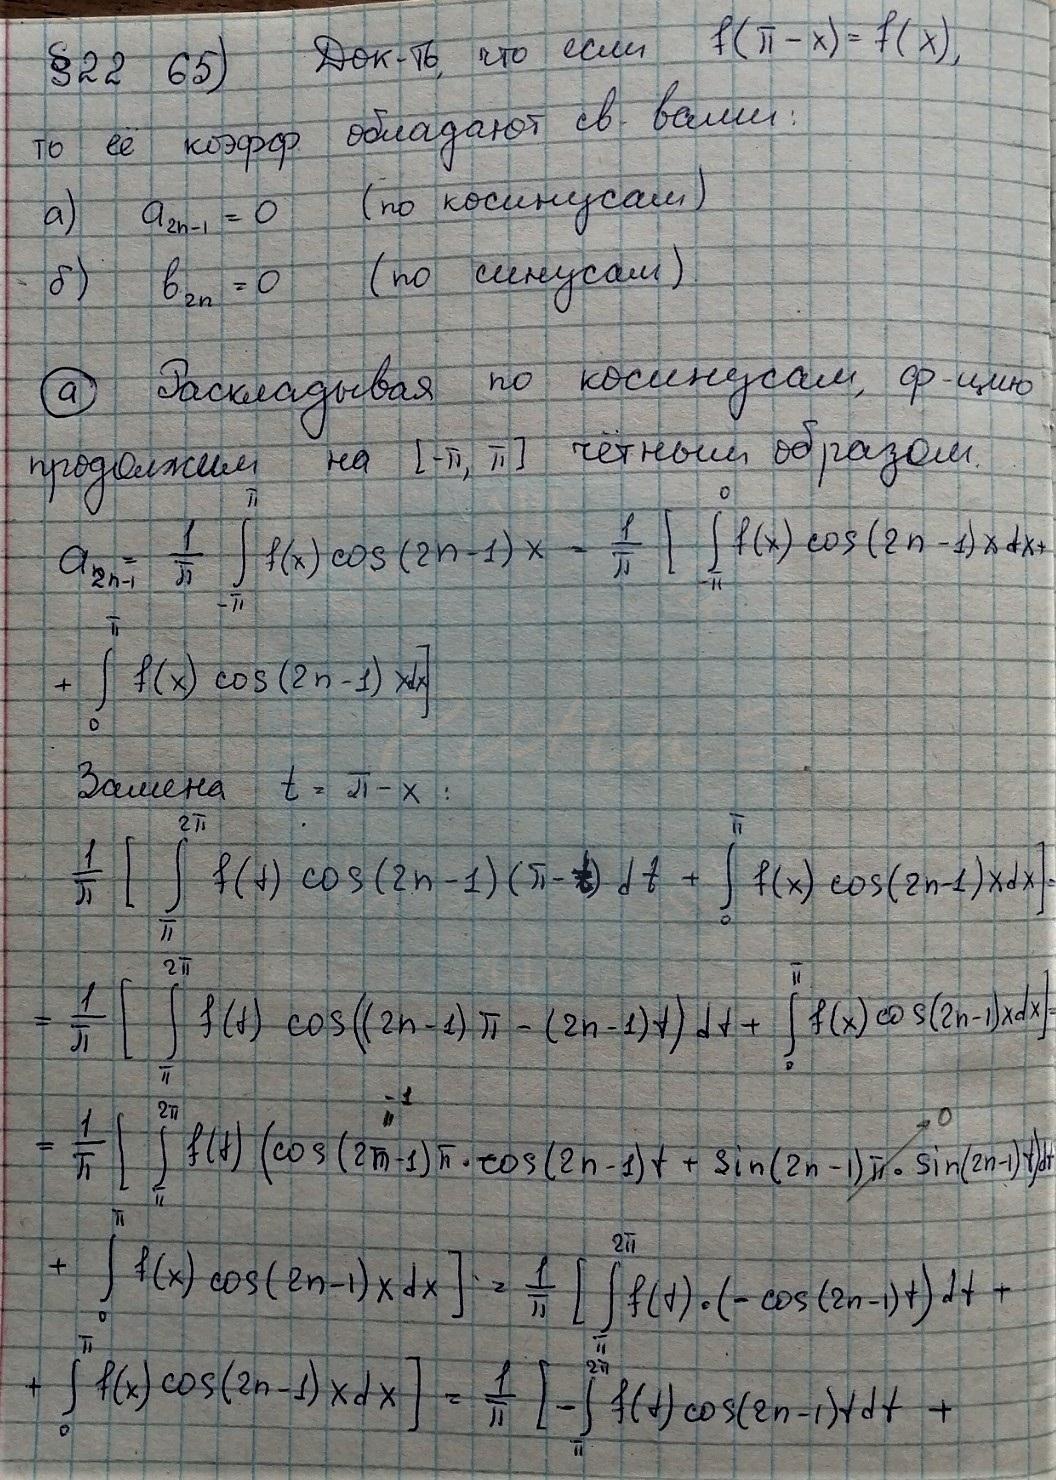 §22 65) Док-ть, что если f(π-x)=f(x),
то её коэфф обладают св-вами:
а) a₂ₙ₋₁ = 0 (по косинусам)
б) b₂ₙ = 0 (по синусам)
(а) Раскладывая по косинусам, ф-цию
продолжим на [-π, π] чётным образом.
a₂ₙ₋₁ = 1/π ∫_{-π}^{π} f(x) cos(2n-1)x = 1/π [ ∫_{-π}^{0} f(x) cos(2n-1)x dx +
+ ∫_{0}^{π} f(x) cos(2n-1) x dx]
Замена t = π - x :
1/π [ ∫_{π}^{2π} f(t) cos(2n-1)(π-t) dt + ∫_{0}^{π} f(x) cos(2n-1)x dx] =
= 1/π [ ∫_{π}^{2π} f(t) cos((2n-1)π - (2n-1)t) dt + ∫_{0}^{π} f(x) cos(2n-1)x dx] =
-1
0
= 1/π [ ∫_{π}^{2π} f(t) (cos(2n-1)π · cos(2n-1)t + sin(2n-1)π · sin(2n-1)t) dt
+ ∫_{0}^{π} f(x) cos(2n-1) x dx ] = 1/π [ ∫_{π}^{2π} f(t) · (- cos(2n-1)t) dt +
+ ∫_{0}^{π} f(x) cos(2n-1) x dx ] = 1/π [ - ∫_{π}^{2π} f(t) cos(2n-1)t dt +